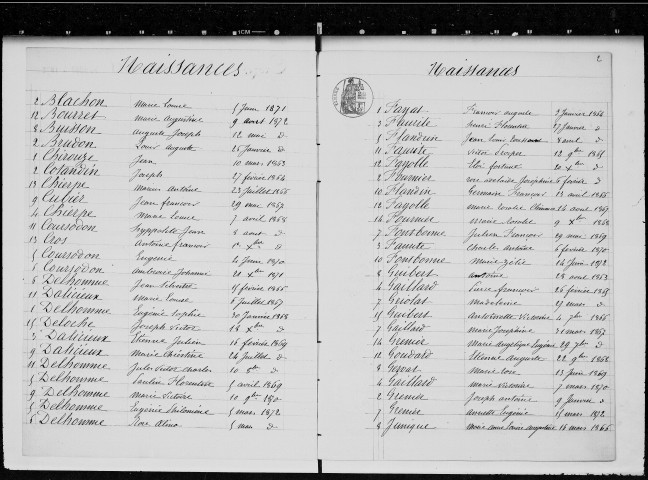 Naissances
2 Blachon Marie Louise 5 Juin 1871
12 Bourret Marie Augustine 9 avril 1872
8 Buisson Auguste Joseph 12 mai d
2 Brudon Louis Auguste 25 Janvier d
1 Chirouze Jean 10 mars 1863
2 Cotandin Joseph 27 février 1864
13 Chierpe Marius Antoine 23 Juillet 1866
9 Cubier Jean francois 29 mai 1867
4 Chierpe Marie Louise 7 avril 1868
11 Coursodon hyppolite Jean 8 aout d
13 Cros Antoine francois 1er Xbre d
5 Coursodon Eugénie 4 Juin 1870
6 Coursodon Ambroise Johanni 21 Xbre 1871
8 Delhomme Jean Silvestre 15 février 1866
11 Dalicieux Marie Louise 6 Juillet 1867
1 Delhomme Eugénie Sophie 30 Janvier 1868
15 Deloche Joseph Victor 18 Xbre d
3 Dalicieux Etienne Julien 16 février 1869
9 Dalicieux Marie Christine 24 Juillet d
11 Delhomme Jules Victor Charles 10 8bre d
5 Delhomme Pauline Florentine 5 avril 1869
9 Delhomme Marie Victoire 10 9bre 1870
5 Delhomme Eugénie Philomène 5 mars 1872
6 Delhomme Rose Alina 5 mai d
2
Naissances
1 Fayat Francois Auguste 3 Janvier 1864
3 Faurite henri Florentin 17 Janvier d
5 Flandrin Jean Louis 8 avril d
11 Faurite Victor Prosper 12 9bre 1865
12 Fayolle Eloi fortuné d
2 Fournier rose adelaide Joséphine 6 février d
10 Flandin Germain Francois 13 avril 1866
12 Fayolle marie rosalie 14 avril 1867
14 Fournier Marie Rosalie 9 Xbre 1868
7 Fontbonne Julien Francois 29 mai 1869
3 Faurite Charles Antoine 6 février 1870
10 Fontbonne Marie Zélie 14 Juin 1872
8 Guibert Antoine 28 avril 1863
4 Gaillard Pierre francois 26 février 1865
7 Griolat Madeleine 27 mars d
15 Guibert Antoinette Victoire 4 7bre 1866
7 Gaillard Marie Joséphine 31 mars 1867
14 Grenier Marie Angélique Eugénie 29 7bre d
12 Goudard Etienne Auguste 22 9bre 1868
8 Gervat Marie rose 13 Juin 1869
4 Gaillard Marie Victoire 7 mars 1870
2 Grenier Joseph antoine 9 Janvier d
7 Grenier Annette Eugénie 15 mars 1872
8 Junique Marie anne Louise augustine 16 mars 1866